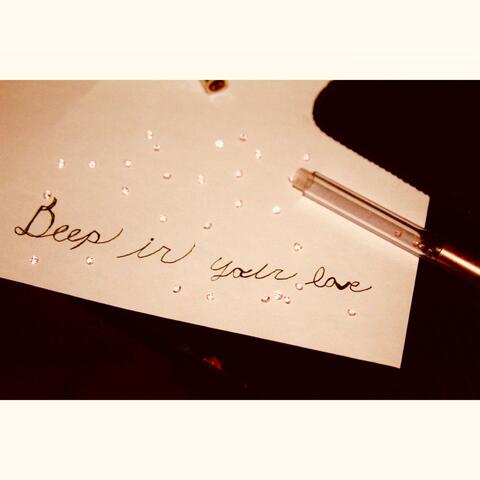 Deep in your love